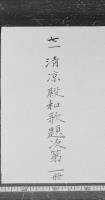 七一 清凉殿和歌題次第 一冊